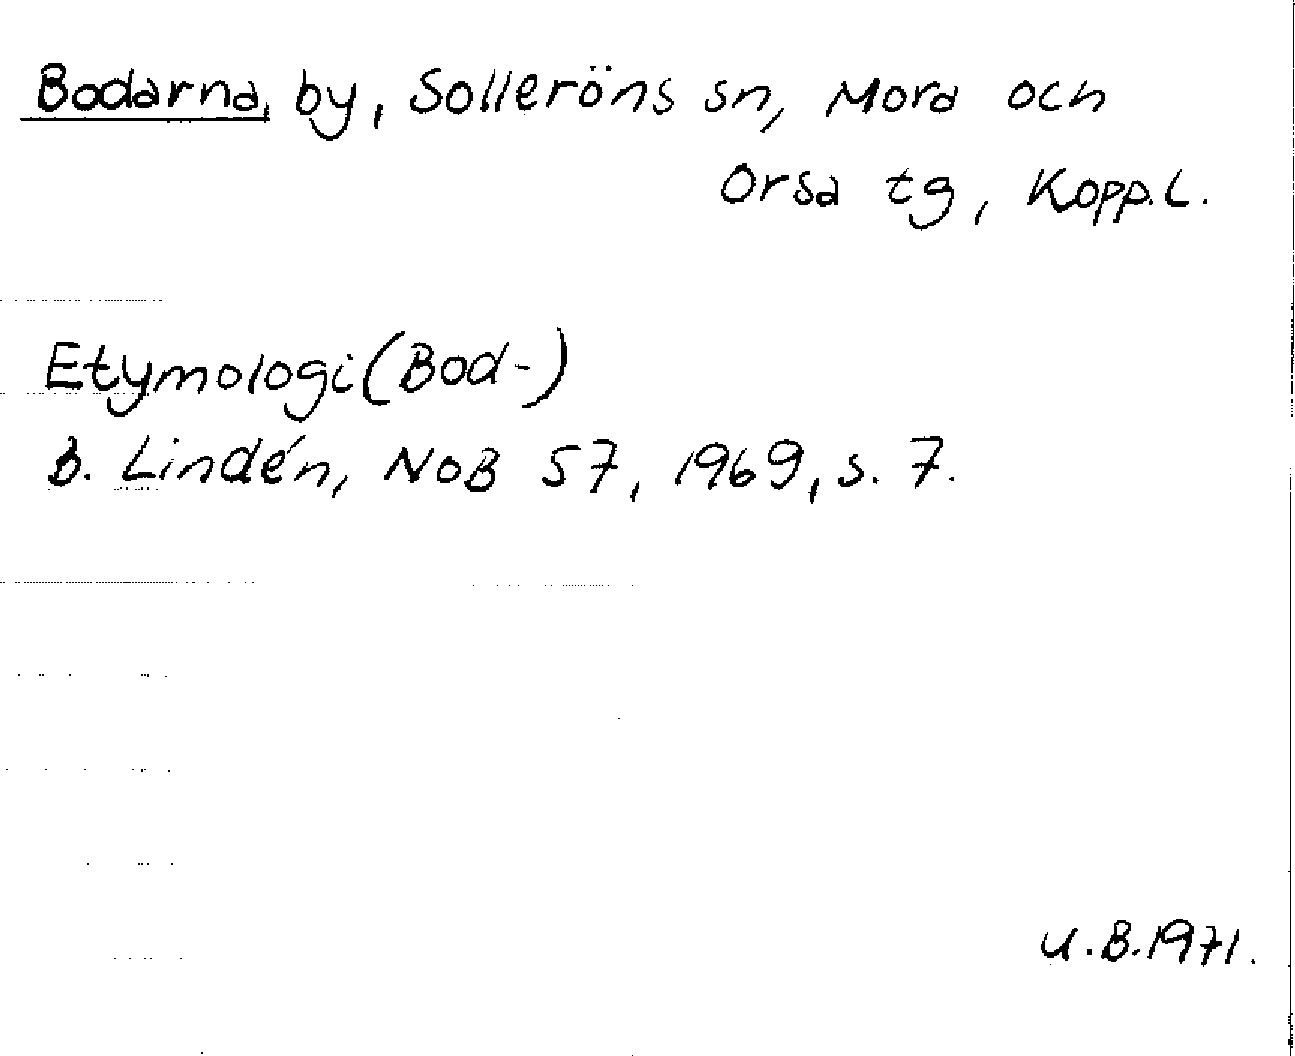 Bodarna, by, Solleröns sn, Mora och
Orsa tg, Kopp.L.
Etymologi (Bod-)
B. Lindén, NoB 57, 1969, s. 7.
U.B.1971.